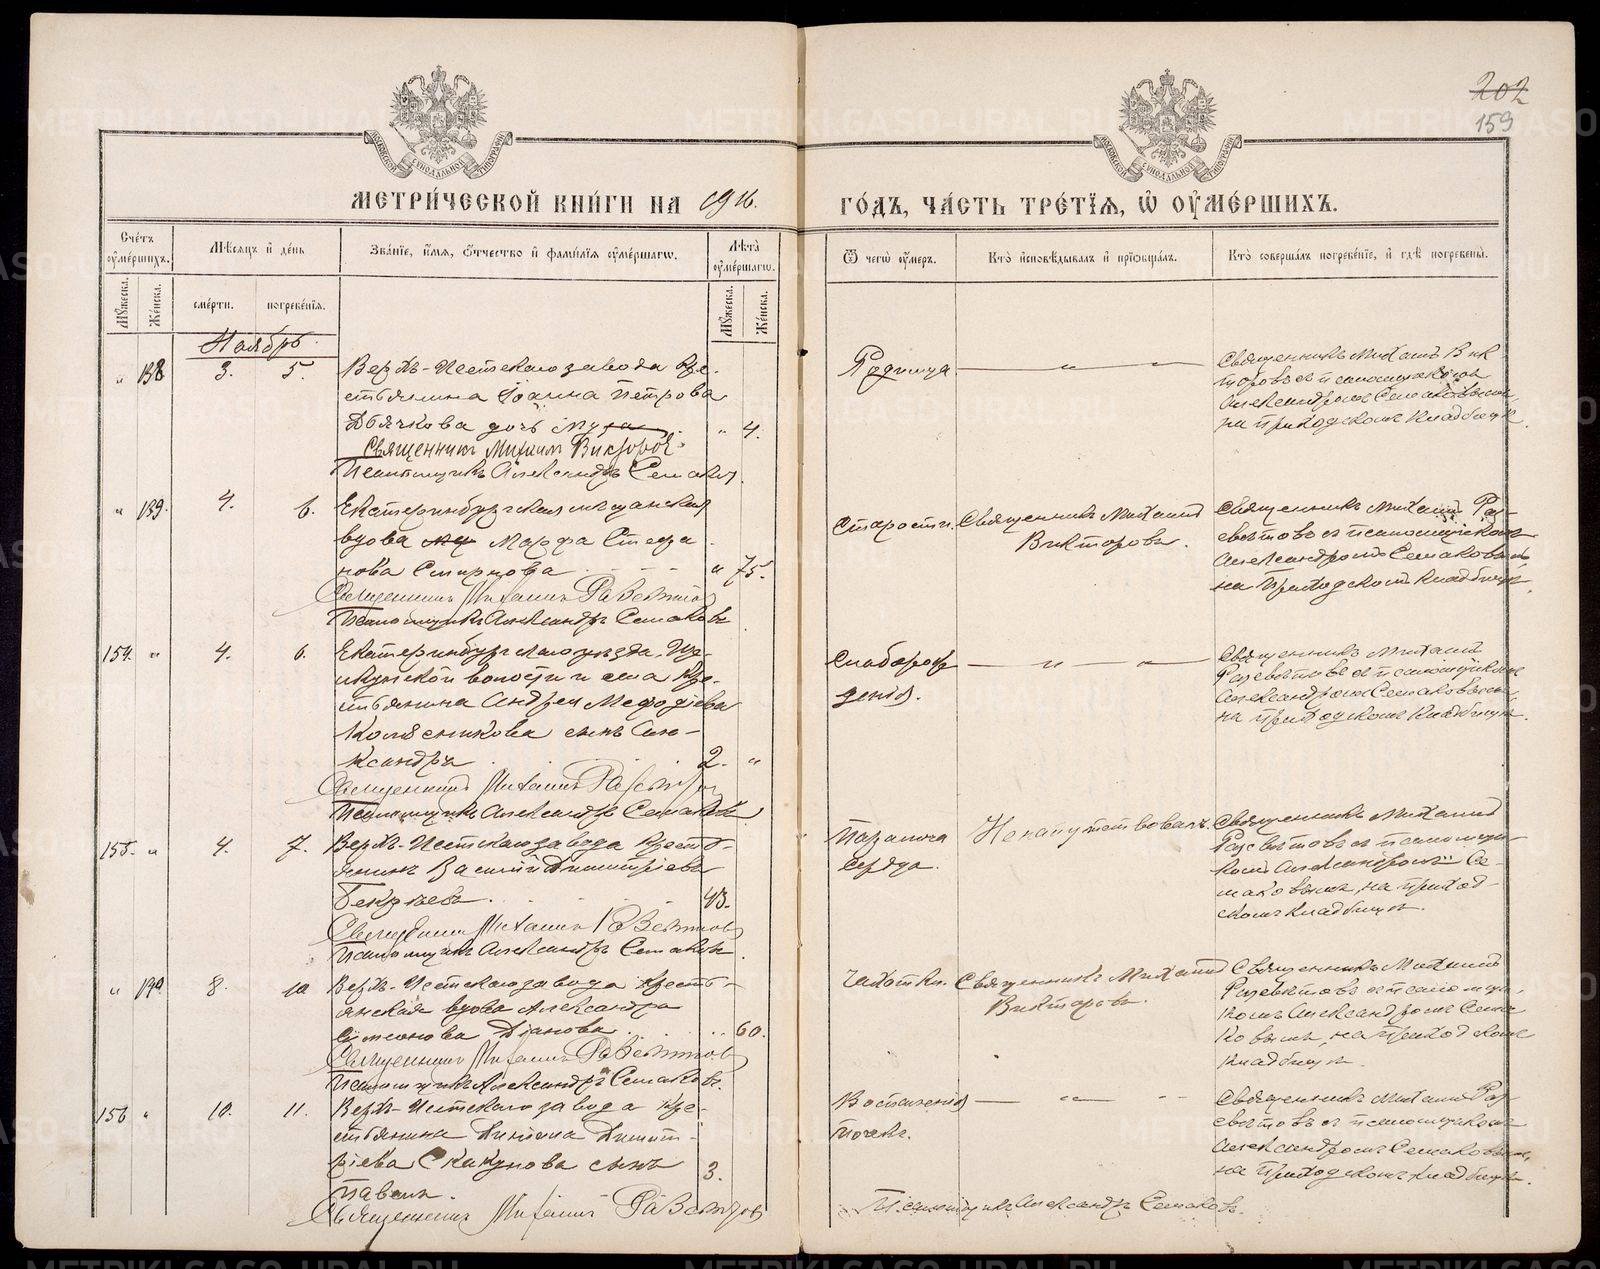 202
159
МОСКОВСКОЙ СѴНОДАЛЬНОЙ ТИПОГРАФІИ
МОСКОВСКОЙ СѴНОДАЛЬНОЙ ТИПОГРАФІИ
МЕТРИ́ЧЕСКОЙ КНИ́ГИ НА 1916.
ГО́ДЪ, ЧА́СТЬ ТРЕ́ТЇѦ, Ѡ҆ ОУ҆МЕ́РШИХЪ.
Счétъ оу҆ме́ршихъ.
Мѣ́сяцъ и҆ де́нь
Зва́нїе, и҆́мѧ, ѻ҆́тчество и҆ фами́лїѧ оу҆ме́ршагѡ.
Лѣ́та оу҆ме́ршагѡ.
Ѿ чегѡ̀ оу҆́меръ.
Кто̀ и҆сповѣ́дывалъ и҆ прїѡбща́лъ.
Кто̀ соверша́лъ погребе́нїе, и҆ гдѣ̀ погребены̀.
Мꙋ́жеска.
Же́нска.
сме́рти.
погребе́нїѧ.
Мꙋ́жеска.
Же́нска.
Ноябрь.
" 138 3. 5. Верхъ-Исетскаго завода кре-
стьянина Іоанна Петрова
Дьячкова дочь " 4.
Священникъ Михаилъ Викторовъ
Псаломщикъ Александръ Семаковъ
Родимца — " — " —
Священникъ Михаилъ Вик-
торовъ съ псаломщикомъ
Александромъ Семаковымъ,
на приходскомъ кладбищѣ.
" 139. 4. 6. Екатеринбургская мѣщанская
вдова Марфа Стефа-
нова Смирнова " 75.
Священникъ Михаилъ Разсвѣтовъ
Псаломщикъ Александръ Семаковъ
Старости.
Священникъ Михаилъ
Викторовъ.
Священникъ Михаилъ Раз-
свѣтовъ съ псаломщикомъ
Александромъ Семаковымъ
на приходскомъ кладбищѣ.
154. " 4. 6. Екатеринбургскаго уѣзда,
волости и села кре-
стьянина Андрея Мефодіева
Колясникова сынъ Але-
ксандръ 2. "
Священникъ Михаилъ Разсвѣтовъ
Псаломщикъ Александръ Семаковъ
Слаборож-
денія. — " — " —
Священникъ Михаилъ
Разсвѣтовъ съ псаломщикомъ
Александромъ Семаковымъ,
на приходскомъ кладбищѣ.
155. " 4. 7. Верхъ-Исетскаго завода кресть-
янинъ Василій Димитріевъ
43.
Священникъ Михаилъ Разсвѣтовъ
Псаломщикъ Александръ Семаковъ
Паралича
сердца.
Не напутствованъ.
Священникъ Михаилъ
Разсвѣтовъ съ псаломщи-
комъ Александромъ Се-
маковымъ, на приход-
скомъ кладбищѣ.
" 140. 8. 10 Верхъ-Исетскаго завода кресть-
янская вдова Александра
60.
Священникъ Михаилъ Разсвѣтовъ
Псаломщикъ Александръ Семаковъ.
Чахотки.
Священникъ Михаилъ
Викторовъ.
Священникъ Михаилъ
Разсвѣтовъ съ псаломщи-
комъ Александромъ Сема-
ковымъ, на приходскомъ
кладбищѣ.
156 " 10. 11. Верхъ-Исетскаго завода кре-
стьянина Димит-
ріева Скакунова сынъ 3.
Павелъ.
Священникъ Михаилъ Разсвѣтовъ
Воспаленія — " — " —
почекъ.
Священникъ Михаилъ Раз-
свѣтовъ съ псаломщикомъ
Александромъ Семаковымъ,
на приходскомъ кладбищѣ.
Псаломщикъ Александръ Семаковъ.
METRIKI.GASO-URAL.RU